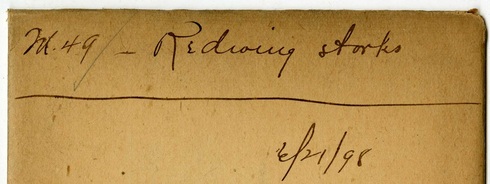 M.49 — Redwing storks
6/21/98